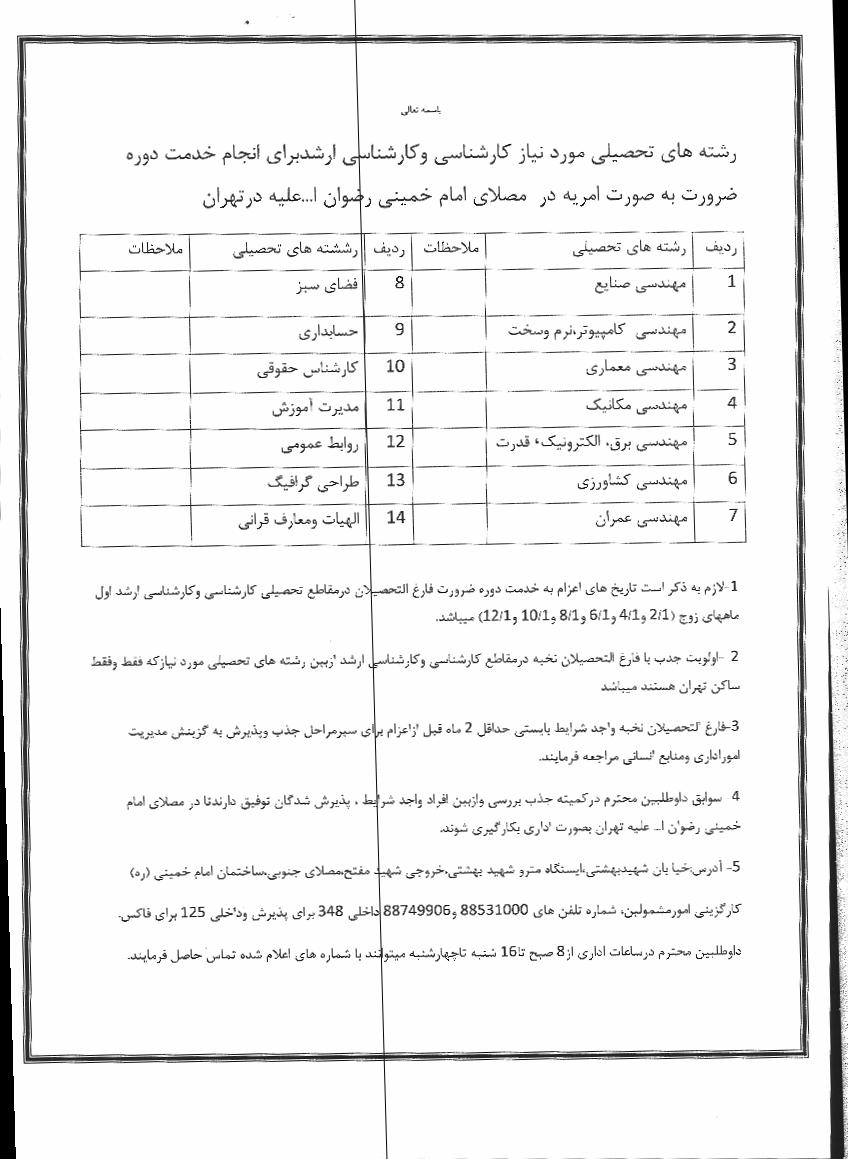 باسمه تعالی
رشته های تحصیلی مورد نیاز کارشناسی وکارشناسی ارشدبرای انجام خدمت دوره
ضرورت به صورت امریه در مصلای امام خمینی رضوان ا...علیه درتهران
ردیف رشته های تحصیلی ملاحظات ردیف رششته های تحصیلی ملاحظات
1 مهندسی صنایع 8 فضای سبز
2 مهندسی کامپیوتر،نرم وسخت 9 حسابداری
3 مهندسی معماری 10 کارشناس حقوقی
4 مهندسی مکانیک 11 مدیرت آموزش
5 مهندسی برق، الکترونیک، قدرت 12 روابط عمومی
6 مهندسی کشاورزی 13 طراحی گرافیگ
7 مهندسی عمران 14 الهیات ومعارف قرانی
1-لازم به ذکر است تاریخ های اعزام به خدمت دوره ضرورت فارغ التحصیلان درمقاطع تحصیلی کارشناسی وکارشناسی ارشد اول
ماههای زوج (2/1 و4/1 و6/1 و8/1 و10/1 و12/1) میباشد.
2 -اولویت جذب با فارغ التحصیلان نخبه درمقاطع کارشناسی وکارشناسی ارشد ازبین رشته های تحصیلی مورد نیازکه فقط وفقط
ساکن تهران هستند میباشد
3-فارغ التحصیلان نخبه واجد شرایط بایستی حداقل 2 ماه قبل ازاعزام برای سیرمراحل جذب وپذیرش به گزینش مدیریت
اموراداری ومنابع انسانی مراجعه فرمایند.
4 سوابق داوطلبین محترم درکمیته جذب بررسی وازبین افراد واجد شرایط ، پذیرش شدگان توفیق دارندتا در مصلای امام
خمینی رضوان ا... علیه تهران بصورت اداری بکارگیری شوند.
5- آدرس:خیا بان شهیدبهشتی،ایستگاه مترو شهید بهشتی،خروجی شهید مفتح،مصلای جنوبی،ساختمان امام خمینی (ره)
کارگزینی امورمشمولین، شماره تلفن های 88531000 و88749906 داخلی 348 برای پذیرش وداخلی 125 برای فاکس.
داوطلبین محترم درساعات اداری از8 صبح تا16 شنبه تاچهارشنبه میتوانند با شماره های اعلام شده تماس حاصل فرمایند.